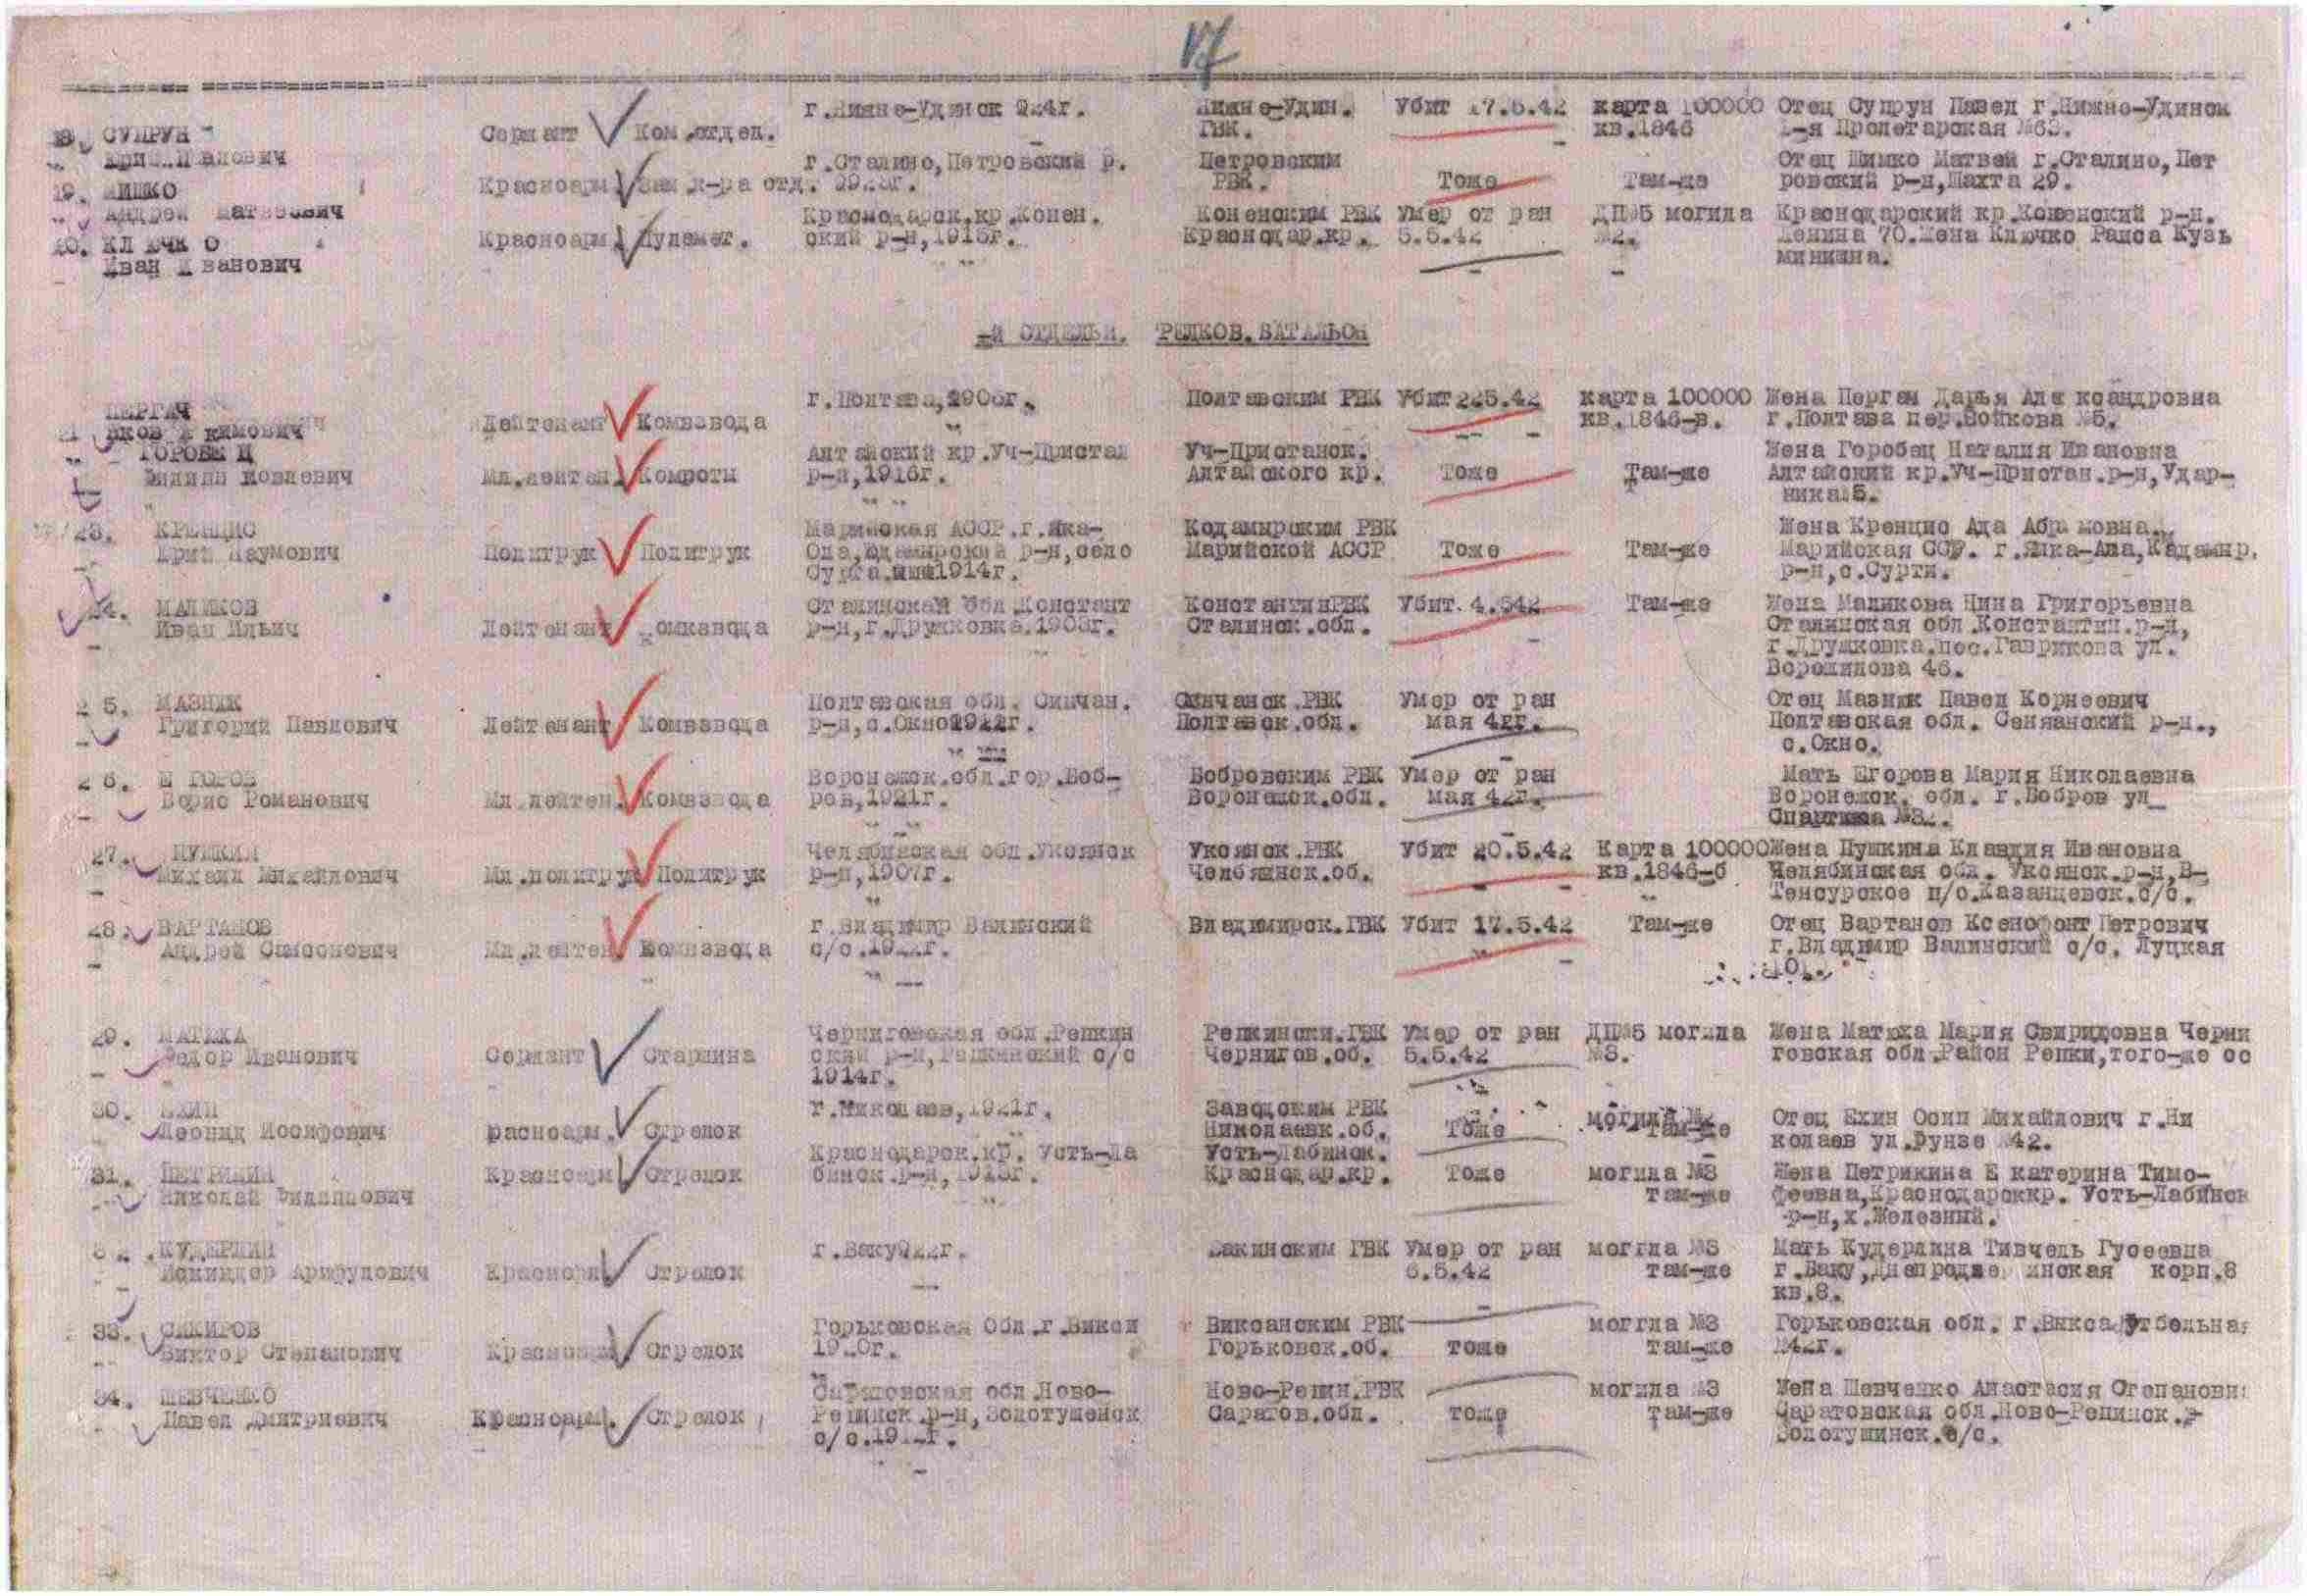 17
г.Нижне-Удинск 924г. Нижне-Удин. Убит 17.5.42 карта 100000 Отец Супрун Павел г.Нижне-Удинск
18. СУПРУН Сержант Ком.отдел. ГВК. кв.1846 Пролетарская
Павлович г.Сталино,Петровский р. Петровским Отец Шишко Матвей г.Сталино,Пет
19. ШИШКО Красноарм. Зам.к-ра отд. РВК. Тоже Там-же ровский р-н,Шахта 29.
Андрей Матвеевич Краснодарск.кр.Конен. Коненским РВК Умер от ран ДП№5 могила Краснодарский кр.Коненский р-н.
20. КЛЮЧКО Красноарм. Пулемет. ский р-н, Краснодар.кр. 5.5.42 №2. Ленина 70.Жена Ключко Раиса Кузь
Иван Иванович миншна.
-й ОТДЕЛЬН. БАТАЛЬОН
ПЕРГАЧ г.Полтава, Полтавским РВК Убит 225.42 карта 100000 Жена Пергач Дарья Александровна
Яков Екимович Лейтенант Комвзвода кв.1846-в. г.Полтава пер.Войкова №5.
ГОРОБЕЦ Алтайский кр.Уч-Пристал Уч-Пристанск. Жена Горобец Наталия Ивановна
Филипп Иовлевич Мл.лейтен. Комроты р-н,1916г. Алтайского кр. Тоже Там-же Алтайский кр.Уч-Пристан.р-н,Удар-
ника 5.
23. КРЕНЦИС Марийская АССР.г.Яка- Кодамырским РВК Жена Кренцис Ада Абрамовна.
Юрий Наумович Политрук Политрук р-н,село Марийской АССР Тоже Там-же Марийская ССР. г.Яка-Ала,Кадамыр.
1914г. р-н,с.Сурти.
24. МАЛИКОВ Сталинская обл.Констант КонстантинРВК Убит. 4.542 Там-же Жена Маликова Нина Григорьевна
Иван Ильич Лейтенант Комвзвода р-н,г.Дружковка.1908г. Сталинск.обл. Сталинская обл.Константин.р-н,
г.Дружковка.пос.Гаврикова ул.
Ворошилова 46.
25. МАЗНЯК Полтавская обл. Синчан. Синчанск.РВК Умер от ран Отец Мазняк Павел Корнеевич
Григорий Павлович Лейтенант Комвзвода р-н,с.Окно1922г. Полтавск.обл. мая 42г. Полтавская обл. Сенчанский р-н.,
с.Окно.
26. ЕГОРОВ Воронежск.обл.гор.Боб- Бобровским РВК Умер от ран Мать Егорова Мария Николаевна
Борис Романович Мл.лейтен. Комвзвода ров,1921г. Воронежск.обл. мая 42г. Воронежск. обл. г.Бобров ул
Спартака
27. ПУШКИН Челябинская обл.Уксянск Уксянск.РВК Убит 20.5.42 Карта 100000 Жена Пушкина Клавдия Ивановна
Михаил Михайлович Мл.политрук Политрук р-н,1907г. Челбяинск.об. кв.1846-б Челябинская обл. Уксянск.р-н,В-
Тенсурское п/о.Казанцевск.с/с.
28. ВАРТАНОВ г.Владимир Валинский Владимирск.ГВК Убит 17.5.42 Там-же Отец Вартанов Ксенофонт Петрович
Андрей Самсонович Мл.лейтен. Комвзвода с/с.1922г. г.Владимир Валинский с/с. Луцкая
29. МАТЮХА Черниговская обл.Репкин Репкински.ГВК Умер от ран ДП№5 могила Жена Матюха Мария Свиридовна Черни
Федор Иванович Сержант Старшина ский р-н,Репкинский с/с Чернигов.об. 5.5.42 №3. говская обл.Район Репки,того-же сс
1914г.
30. ЕХИН г.Николаев,1921г. Заводским РВК могила Отец Ехин Осип Михайлович г.Ни
Леонид Иосифович расноарм. Стрелок Николаевк.об. Тоже Там-же колаев ул.Фрунзе 42.
Краснодарск.кр. Усть-Ла Усть-Лабинск.
31. ПЕТРИКИН Красноарм Стрелок бинск.р-н, Краснодар.кр. Тоже могила №3 Жена Петрикина Екатерина Тимо-
Николай Филиппович там-же феевна,Краснодарсккр. Усть-Лабинск
р-н,х.Железный.
32. КУДЕРЛИН г.Баку922г. Бакинским ГВК Умер от ран могила №3 Мать Кудерлина Тивчель Гусеевна
Искиндер Арифулович Красноарм Стрелок 6.5.42 там-же г.Баку,Днепродзержинская корп.8
кв.8.
33. САКИРОВ Горьковская Обл.г.Викси Виксанским РВК моггла №3 Горьковская обл. г.Викса
Виктор Степанович Красноарм Стрелок Горьковск.об. тоже там-же №42г.
34. ШЕВЧЕНКО Саратовская обл.Ново- Ново-Репин.РВК могила №3 Жена Шевченко Анастасия Степановн
Павел Дмитриевич Красноарм. Стрелок Репинск.р-н,Золотушенск Саратов.обл. тоже там-же Саратовская обл.Ново-Репинск.р-
с/с. Золотушинск.с/с.